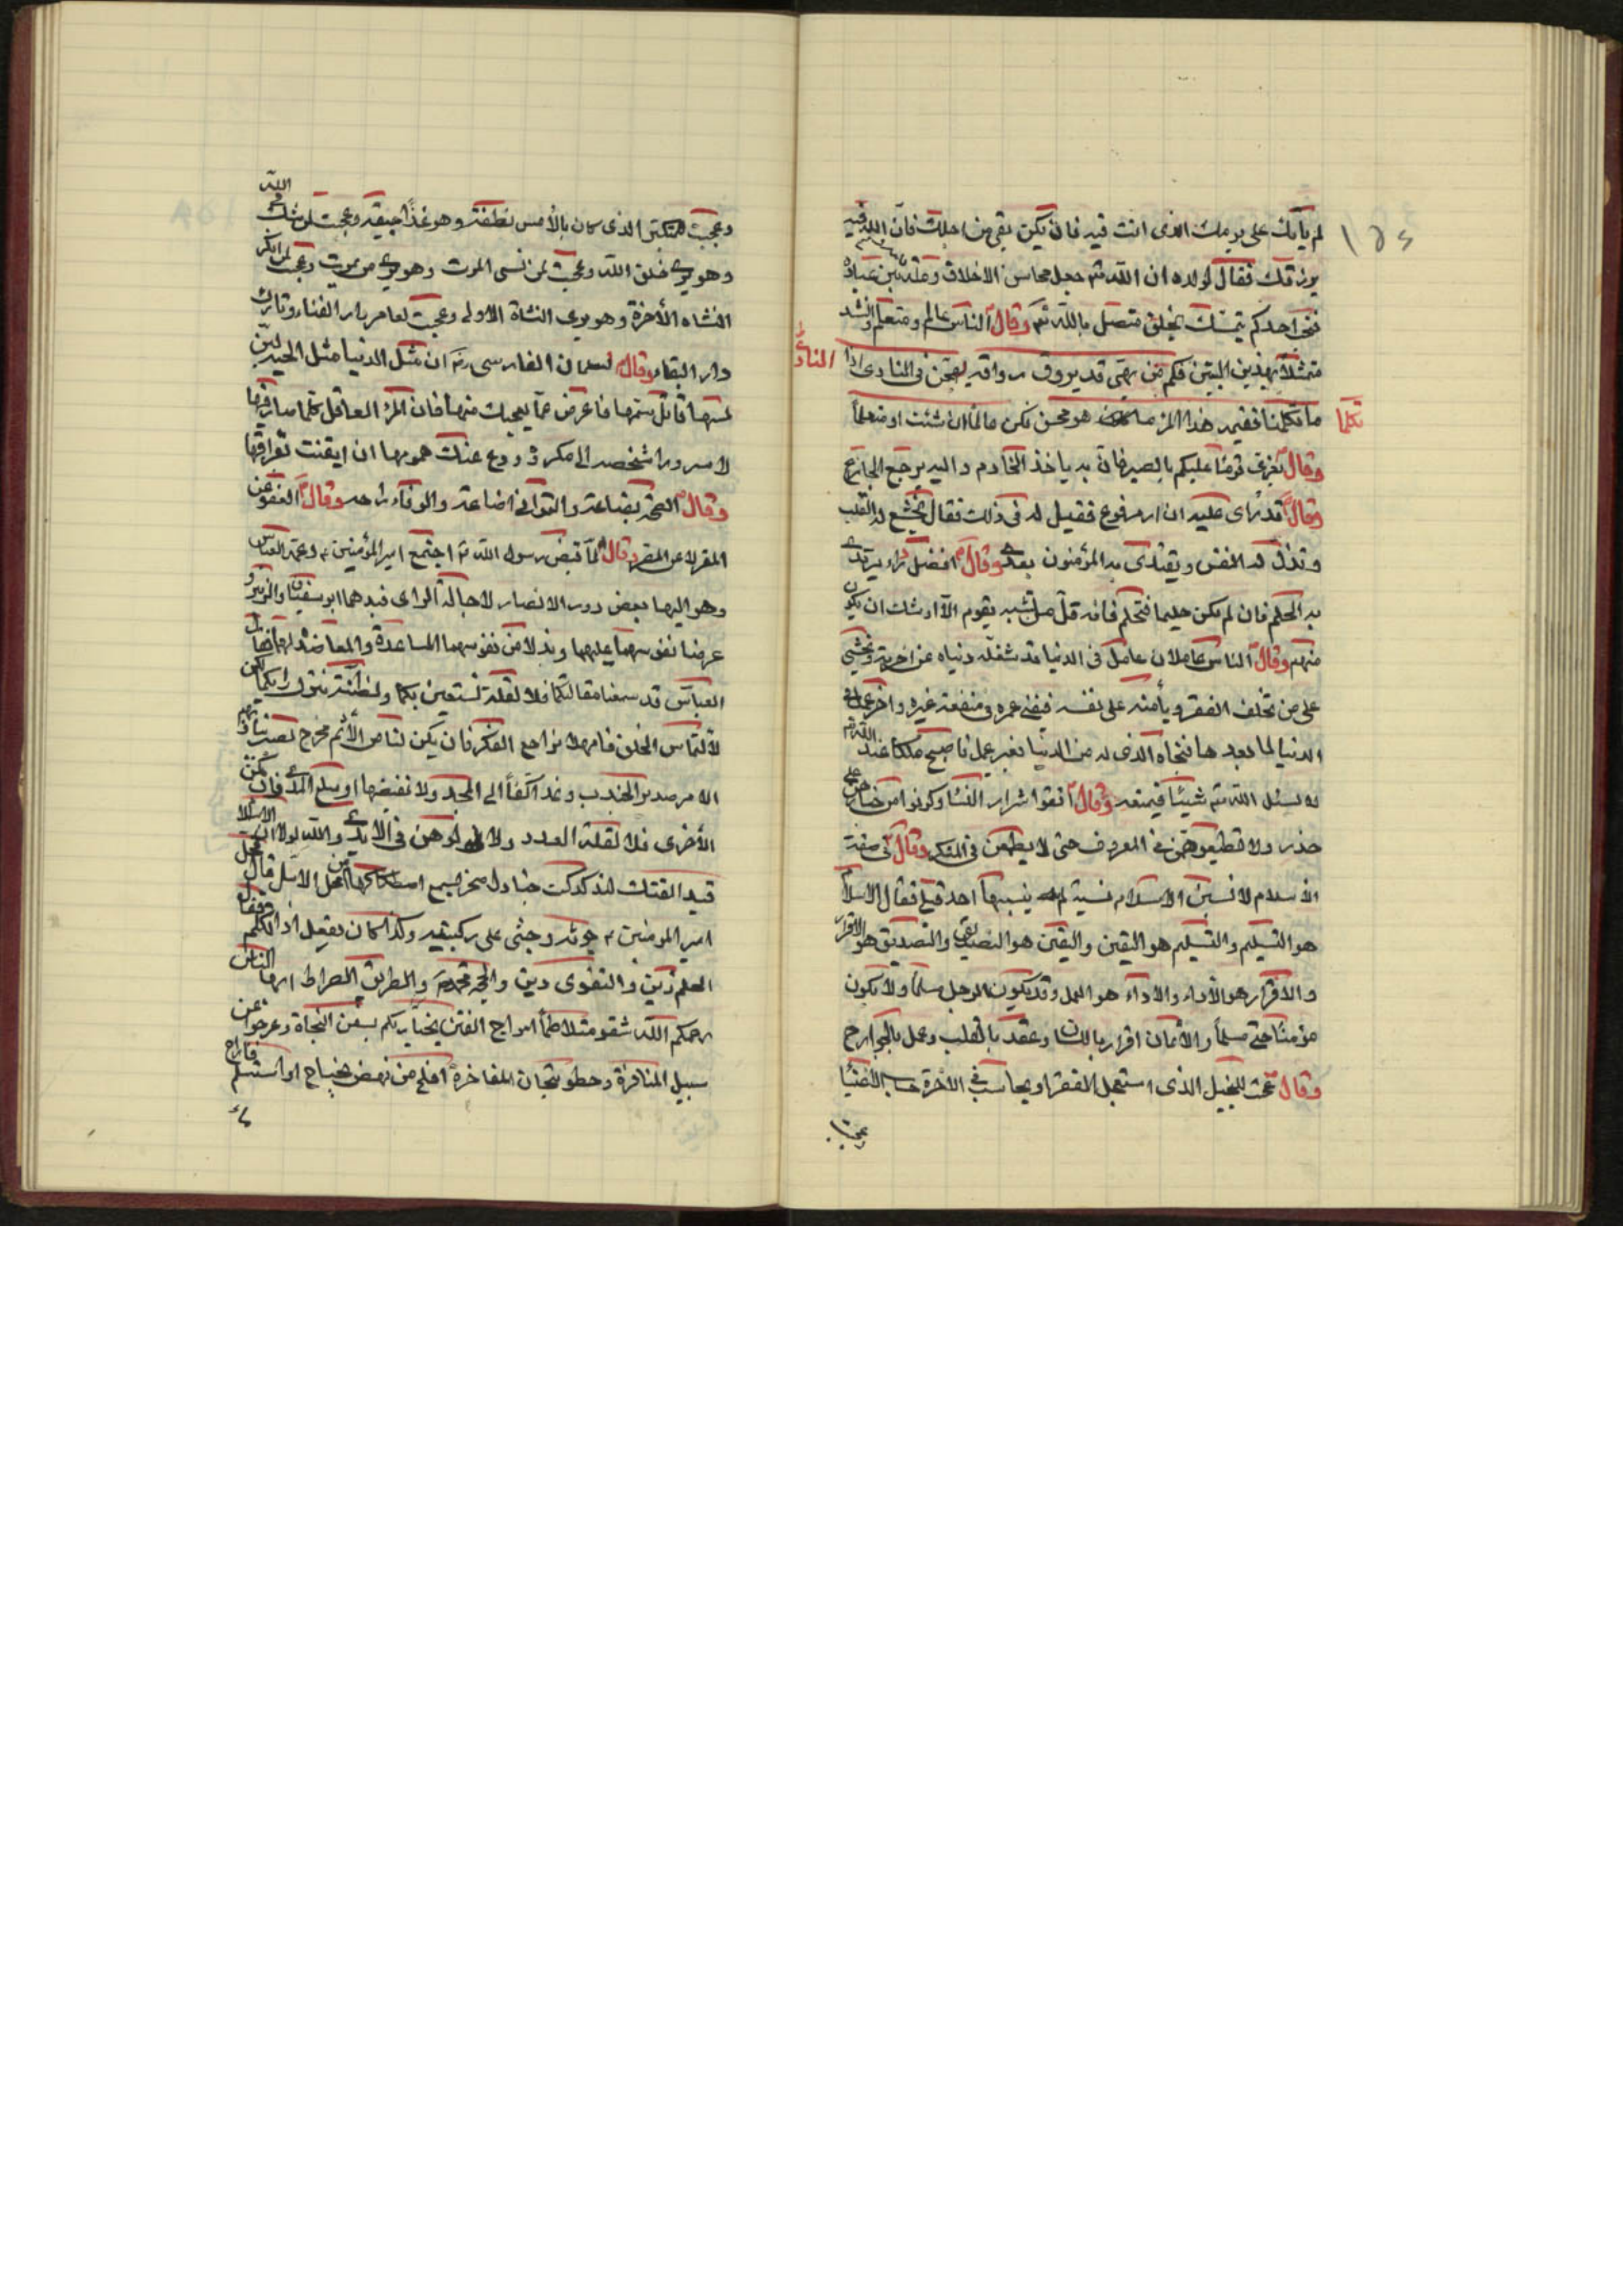 ١٥٤
لم يأتك على يومك الذى انت فيه فان يكن بقى من اجلك فان الله فيه
يرزقك فقال لولده ان الله تم جعل محاسن الاخلاق وصلة بين عباده
احدكم يتمسك بخلق متصل بالله تم وقال الناس عالم ومتعلم وانشد
متمثلا بهذين البيتين فكم من بهى قد يروق رواقه فى النادى اذا
ما تكلما فقيمة هذا المرء ما هو محسن فكن عالما ان شئت او متعلما
تكلما
وقال يعزى قوما عليكم بالصبر فان به ياخذ الحازم واليه يرجع الجازع
وقال قد رأى عليه ازار مرفوع فقيل له فى ذلك فقال يخشع له القلب
وتذل له النفس ويقتدى به المؤمنون بعدى وقال افضل رداء يرتدى
به الحلم فان لم يكن حليما فتحلم فانه قل من تشبه بقوم الا اوشك ان يكون
منهم وقال الناس عاملان عامل فى الدنيا قد شغلته دنياه عن اخرته ويخشى
على من تخلف الفقر ويأمنه على نفسه فيفنى عمره فى منفعة غيره واخر عمل فى
الدنيا لما بعدها فجاه الذى له من الدنيا بغير عمل فاصبح ملكا عند الله تم
لا يسئل الله تم شيئا فيمنعه وقال اتقوا شرار النسا وكونوا من خيارهن على
حذر ولا تطيعوهن فى المعروف حتى لا يطمعن فى المنكر وقال فى صفة
الاسلام لانسبن الاسلام نسبة لم ينسبها احد قبلى فقال الاسلام
هو التسليم والتسليم هو اليقين واليقين هو التصديق والتصديق هو الاقرار
والاقرار هو الأداء والاداء هو العمل وقد يكون الرجل مسلما ولا يكون
مؤمنا حتى مسلما والايمان اقرار باللسان وعقد بالقلب وعمل بالجوارح
وقال عجبت للبخيل الذى استعجل الفقر ويحاسب فى الاخرة حساب الاغنيا
وعجبت
وعجبت المتكبر الذى كان بالأمس نطفة وهو غدا جيفة وعجبت لمن شك فى الله
وهو يرى خلق الله وعجبت لمن نسى الموت وهو يرى من يموت وعجبت لمن انكر
النشاة الأخرة وهو يرى النشاة الاولى وعجبت لعامر دار الفناء وتارك
دار البقاء وقال لسلمان الفارسى رض ان مثل الدنيا مثل الحية لين
لمسها قاتل سمها فاعرض عما يعجبك منها فان المرء العاقل كلما صار فيها
لا سرورا شخصه الى مكروه ودع عنك همومها ان ايقنت بفراقها
وقال الصحة بضاعة والتوانى اضاعة والوفاء راحه وقال العفو عن
المقر لا عن المصر وقال لما قبض رسول الله ص اجتمع امير المؤمنين ع وعمه العباس
الها بعض دور الانصار لاجالة الراى فبدهما ابو سفيان والزبير و
عرضا نفوسهما عليهما وبذلا من نفوسهما المساعدة والمعاضدة لهما فقال
العباس قد سمعنا مقالتكما فلا لقلة نستعين بكما ولا لظنة نترك رايكما لكن
لالتماس الحق فامهلا نراجع الفكر فان يكن لنا من الأثم مخرج
الأخرى فلا لقلة العدد ولا لوهن فى الايدى والله لولا ان الاسلام
قيد الفتك
امير المؤمنين ع وجثى على ركبتيه وكذا كان يفعل اذا تكلم فقال
الحلم زين والتقوى دين والحجة محمد ص والطريق الصراط ايها الناس
رحمكم الله شقو متلاطما امواج الفتن بسفن النجاة وعرجوا عن
سبيل المنافرة وحطو تيجان المفاخرة افلح من نهض بجناح او استسلم فاراح
ماء